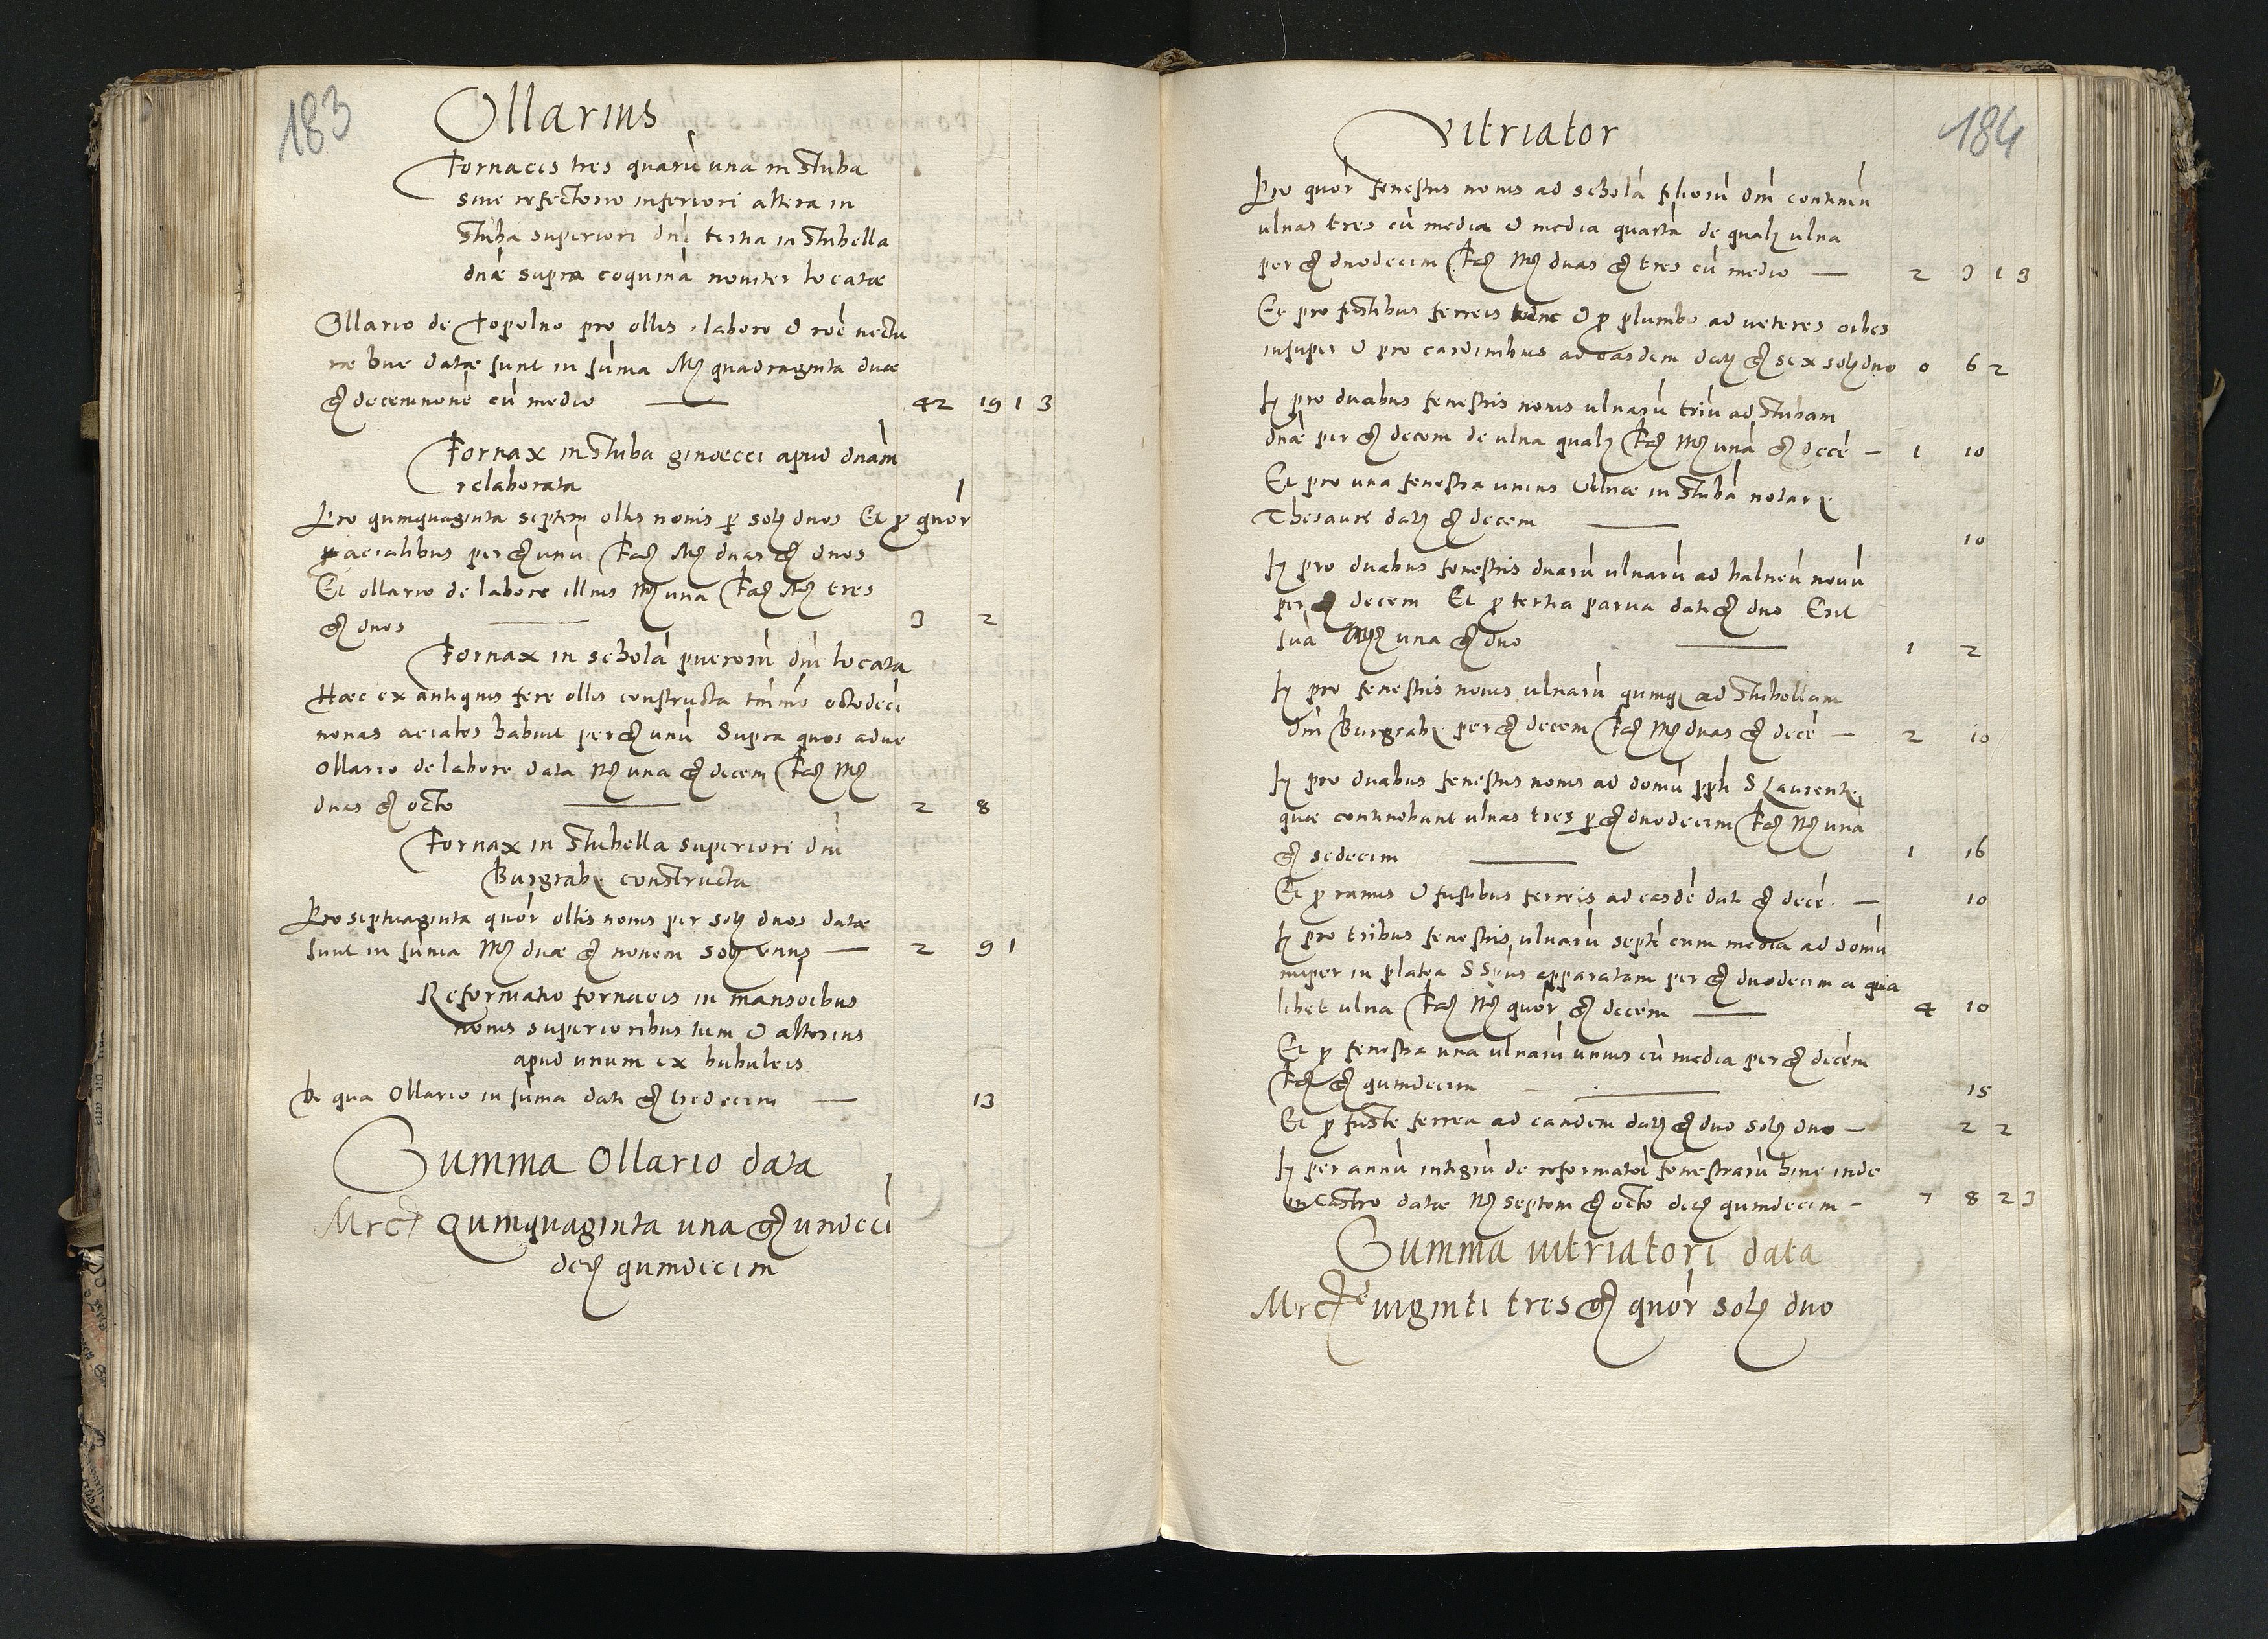 183
Ollarius
Fornaces tres quarũ una in stuba
sive refectorio inferiori altera in
stuba superiori dñi tertia in stubella
dñæ supra coquinã noviter locatæ
Ollario de Topolno pro ollis labore & vectu
ræ huc datæ sunt in sũma Mr̃ quadraginta duæ
gr̃ decemnovẽ cũ medio — 42 19 1 3
Fornax in stuba ginæcei apud dnãm
relaborata
Pro quinquaginta septem ollis novis p̱ sol̃ duos Et p̱ quõr
acialibus per gr̃ unũ Fac̃ Mr̃ duas gr̃ duos
Et ollario de labore illius Mr̃ una Fac̃ Mr̃ tres
gr̃ duos — 3 2
Fornax in scholã puerorũ dñi locata
Hæc ex antiquis fere ollis constructa octodecĩ
novas aciales habuit per gr̃ unũ Supra quos
ollario de labore data Mr̃ una gr̃ decem Fac̃ Mr̃
duas gr̃ octo — 2 8
Fornax in stubella superiori dñi
Burgrabỹ constructa
Pro septuaginta quõr ollis novis per sol̃ duos datæ
sunt in sũma Mr̃ duæ gr̃ novem sol̃ unus — 2 9 1
Reformatio fornacis in mansoibus
novis superioribus tum & alterius
apud unum ex bubuleis
De qua Ollario in sũma dati gr̃ tredecim — 13
Summa Ollario data
Mrc̃ Quinquaginta una gr̃ undecĩ
deñ quindecim
184
Vitriator
Pro quõr fenestris novis ad scholã filiorũ dñi continen̄
ulnas tres cũ media & media quartã de qualꝫ ulna
per gr̃ duodecim Fac̃ Mr̃ duas gr̃ tres cũ medio — 2 3 1 3
Et pro fustibus ferreis & p̱ plumbo ad veteres orbes
insuper & pro cardinibus ad easdem datꝫ gr̃ sex sol̃ duo 0 6 2
Itꝫ pro duabus fenestris novis ulnarũ triũ ad stubam
dñæ per gr̃ decem de ulna qualꝫ Fac̃ Mr̃ unã gr̃ decẽ — 1 10
Et pro una fenestra unius ulnæ in stubã notarỹ
Thesaurĩ datꝫ gr̃ decem — 10
Itꝫ pro duabus fenestris duarũ ulnarũ ad balneũ novũ
per gr̃ decem Et p̱ tertia parva dati gr̃ duo Erit
sũa Mr̃ una gr̃ duo — 1 2
Itꝫ pro fenestris novis ulnarũ quinqꝫ ad stubellam
dñi Burgrabỹ per gr̃ decem Fac̃ Mr̃ duas gr̃ decẽ — 2 10
Itꝫ pro duabus fenestris novis ad domũ p̱p̱ti S Laurentỹ
quæ continebunt ulnas tres p̱ gr̃ duodecim Fac̃ Mr̃ una
gr̃ sedecim — 1 16
Et p̱ ramis & fustibus ferreis ad easdẽ dati gr̃ decẽ — 10
Itꝫ pro tribus fenestris ulnarũ septẽ cum media ad domũ
nuper in platea S Sp̃us apparatam per gr̃ duodecim a qua
libet ulna Fac̃ Mr̃ quõr gr̃ decem — 4 10
Et p̱ fenestra una ulnarũ unius cũ media per gr̃ decem
Fac̃ gr̃ quindecim — 15
Et p̱ fuste ferrea ad eandem datꝫ gr̃ duo sol̃ duo — 2 2
Itꝫ per annũ integrũ de reformatõe fenestrarũ hinc inde
in Castro datæ Mr̃ septem gr̃ octo deñ quindecim — 7 8 2 3
Summa vitriatori data
Mrc̃æ viginti tres gr̃ quõr sol̃ duo